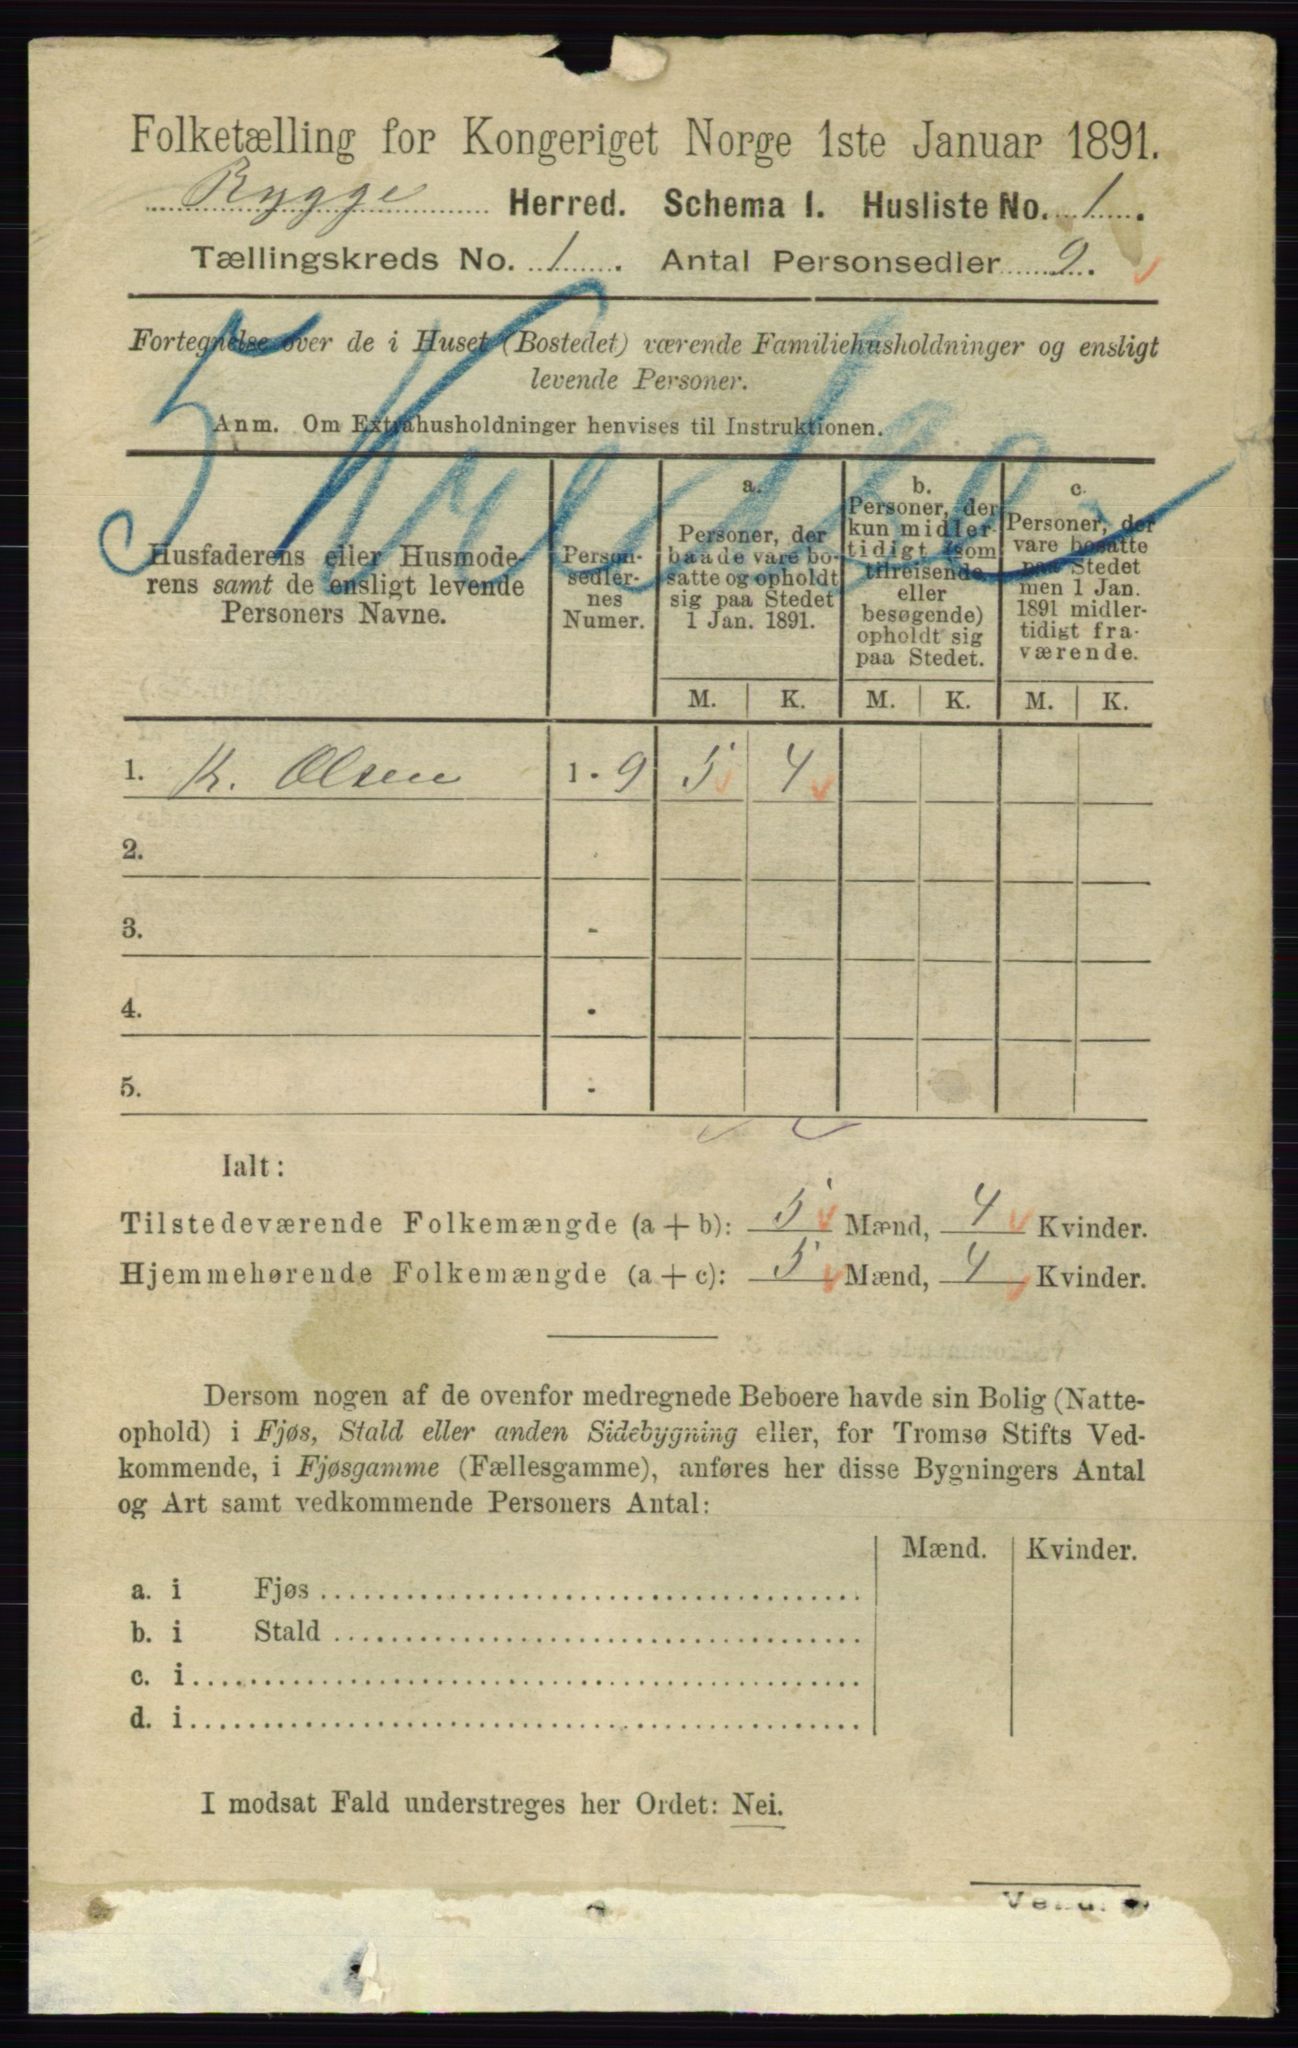 Folketælling for Kongeriget Norge 1ste Januar 1891.
Rygge Herred. Schema I. Husliste No. 1.
Tællingskreds No. 1. Antal Personsedler 9.
Fortegnelse over de i Huset (Bostedet) værende Familiehusholdninger og ensligt
levende Personer.
Anm. Om Extrahusholdninger henvises til Instruktionen.
Husfaderens eller Husmode-
rens samt de ensligt levende
Personers Navne.
Person-
sedler-
nes
Numer.
a.
Personer, der
baade vare bo-
satte og opholdt
sig paa Stedet
1 Jan. 1891.
b.
Personer, der
kun midler-
tidigt (som
tilreisende
eller
besøgende)
opholdt sig
paa Stedet.
c.
Personer, der
vare bosatte
paa Stedet
men 1 Jan.
1891 midler-
tidigt fra-
værende.
M. K. M. K. M. K.
1. K. Olsen 1 - 9 5 4
2.
3. -
4. -
5. -
Ialt:
Tilstedeværende Folkemængde (a + b): 5 Mænd, 4 Kvinder.
Hjemmehørende Folkemængde (a + c): 5 Mænd, 4 Kvinder.
Dersom nogen af de ovenfor medregnede Beboere havde sin Bolig (Natte-
ophold) i Fjøs, Stald eller anden Sidebygning eller, for Tromsø Stifts Ved-
kommende, i Fjøsgamme (Fællesgamme), anføres her disse Bygningers Antal
og Art samt vedkommende Personers Antal:
Mænd. Kvinder.
a. i Fjøs
b. i Stald
c. i
d. i
I modsat Fald understreges her Ordet: Nei.